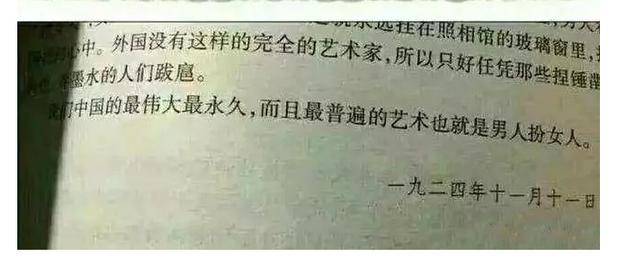 永远挂在照相馆的玻璃窗里，
心中。外国没有这样的完全的艺术家，所以只好任凭那些捏锤凿
墨水的人们跋扈。
我们中国的最伟大最永久，而且最普遍的艺术也就是男人扮女人。
一九二四年十一月十一日